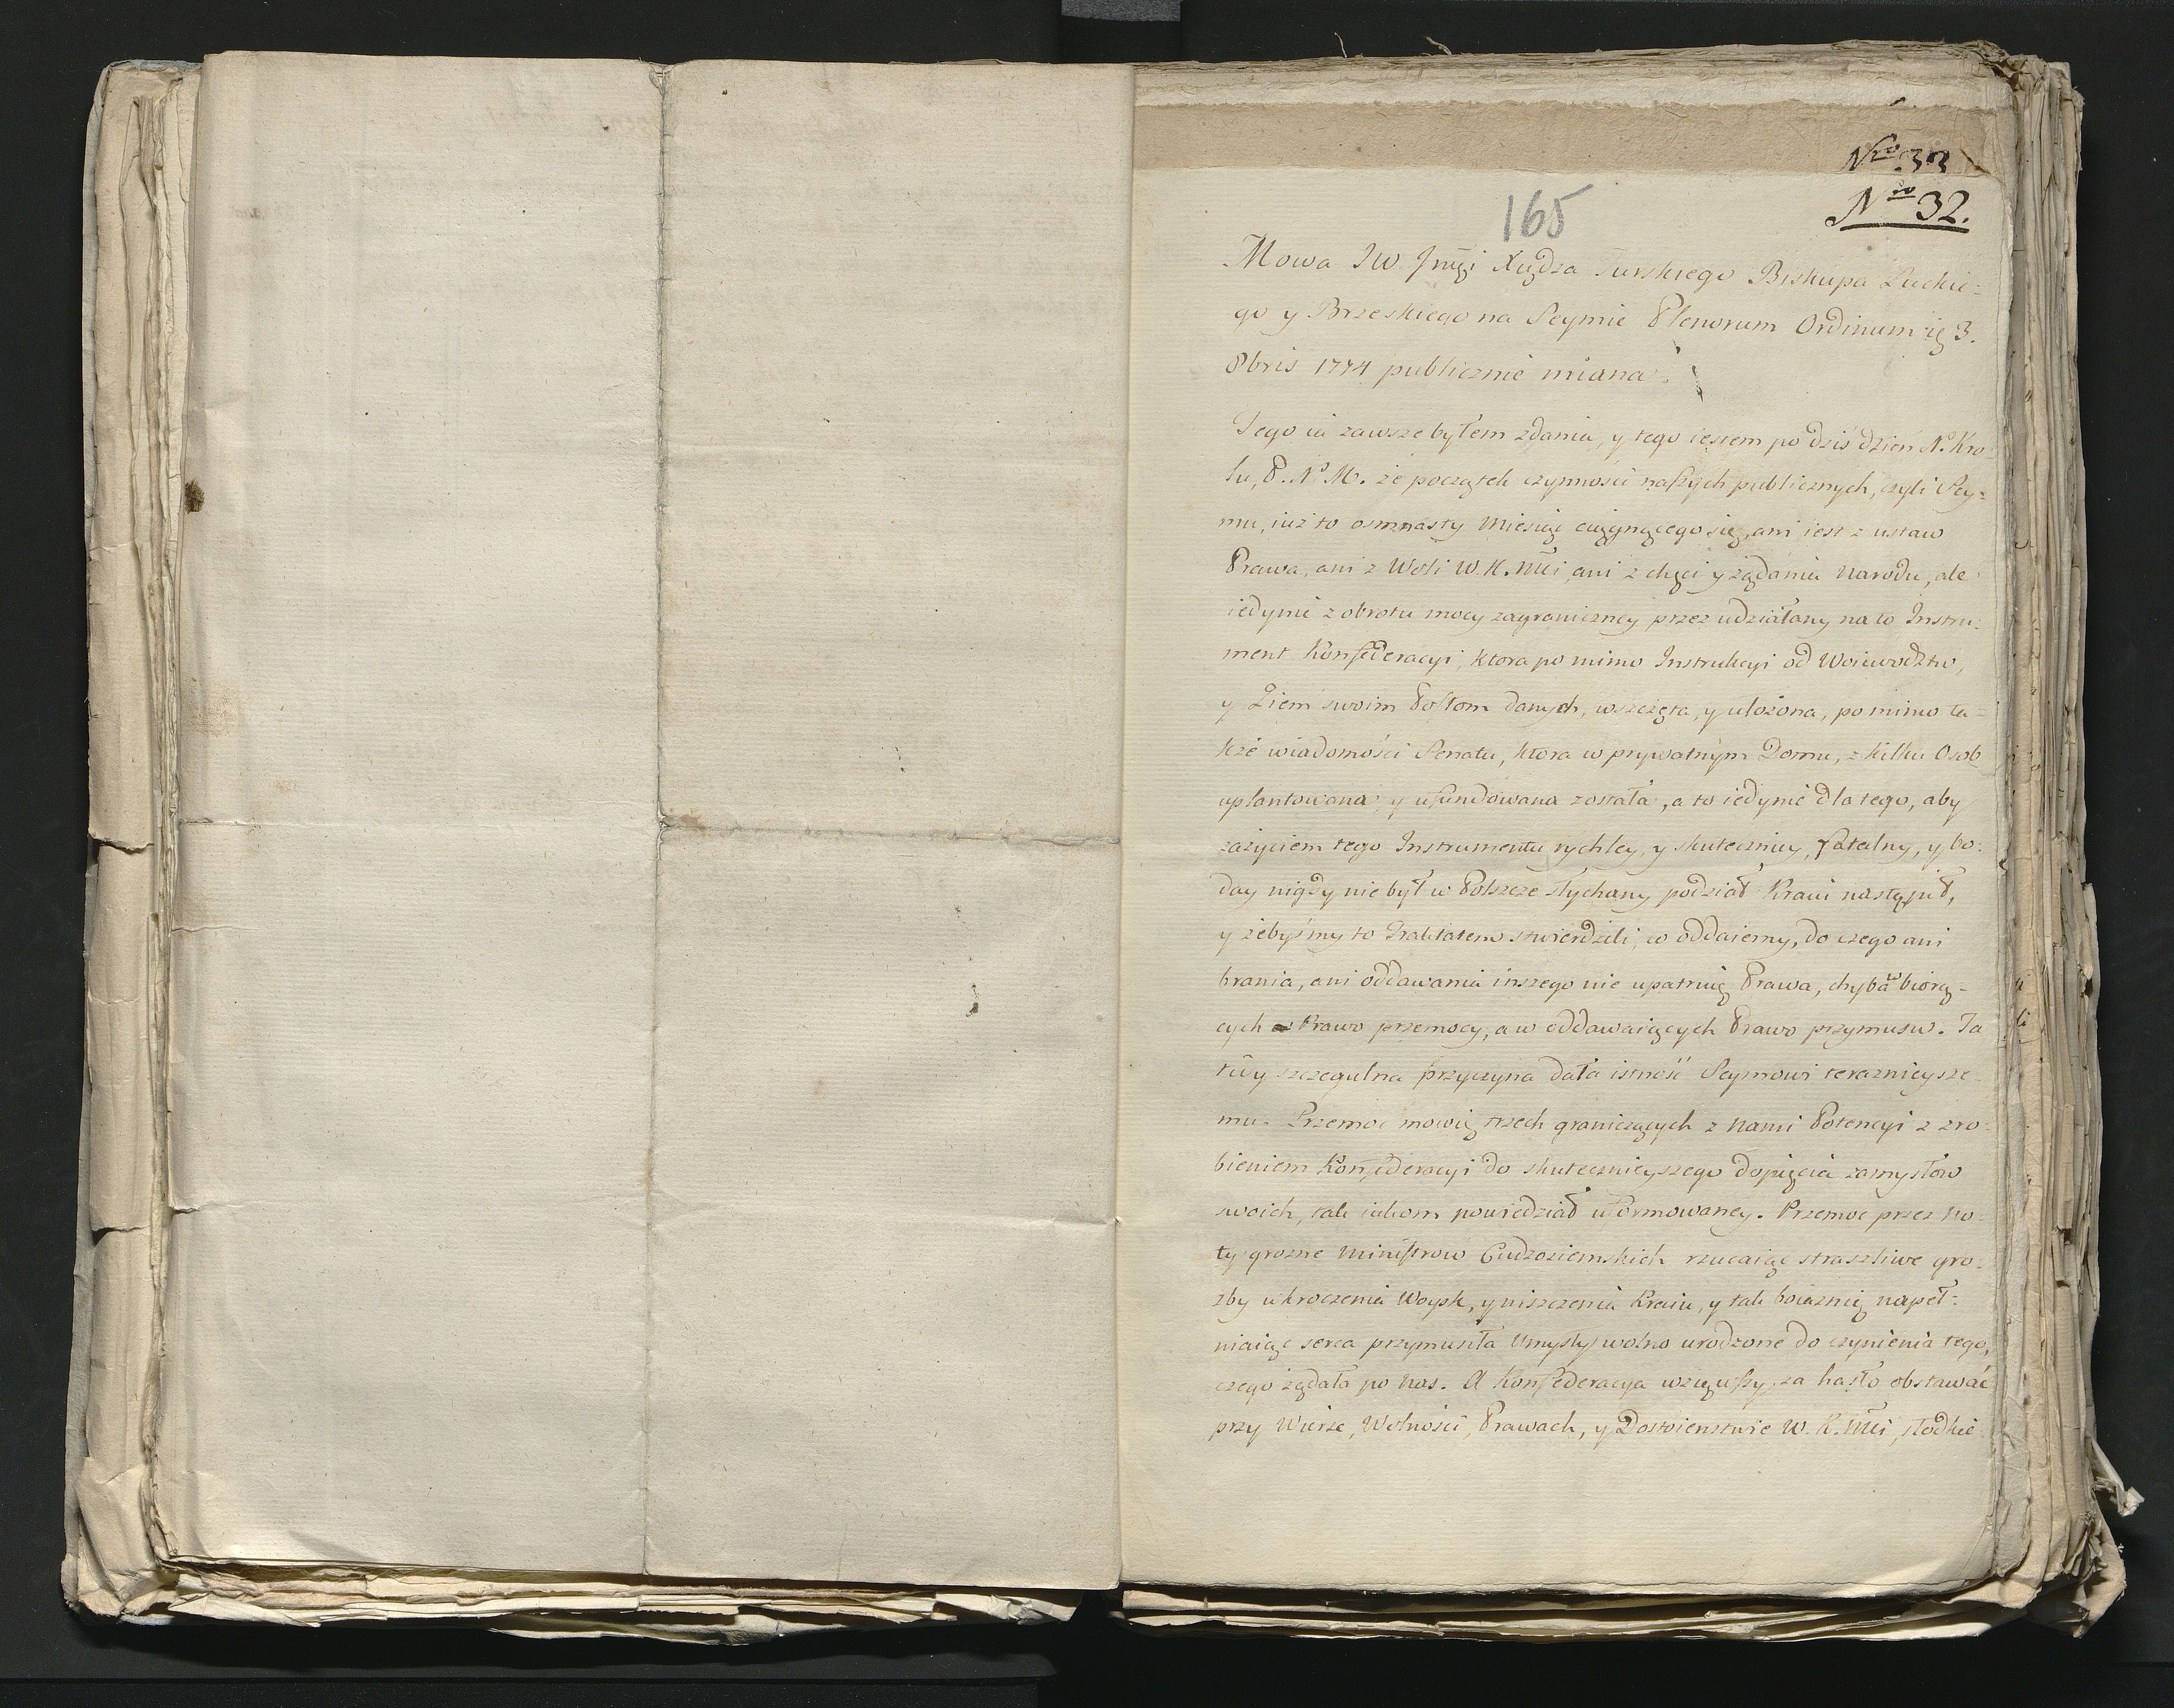 Nro 33
Nro 32.
165
Mowa JW. Jmći Xiędza Turskiego Biskupa Łuckie-
go y Brzeskiego na Seymie Plenorum Ordinum ię 3.
8bris 1774 publicznie miana.
Tego ia zawsze byłem zdania, y tego iestem po dziś dzien N. Kro-
lu, P. N. M. że początek czynności naszych publicznych, czyli Sey-
mu, iuż to osmnasty Miesiąc ciągnącego się, ani iest z ustaw
Prawa, ani z Woli W. K. Mći, ani z chęci y żądania Narodu, ale
iedynie z obrotu mocy zagraniczney przez udziałany na to Instru-
ment Konfederacyi, ktora po mimo Instrukcyi od Woiewodztw,
y Ziem swoim Posłom danych, wszczęta, y ułożona, po mimo ta-
kże wiadomości Senatu, ktora w prywatnym Domu, z kilku Osob
uplantowana, y ufundowana została, a to iedynie dla tego, aby
zażyciem tego Instrumentu rychley, y skuteczniey, fatalny, y bo-
day nigdy nie był w Polszcze słychany podział Kraiu nastąpił,
y żebyśmy to Traktatem stwierdzili, co oddaiemy, do czego ani
brania, ani oddawania inszego nie upatruię Prawa, chyba w biorą-
cych Prawo przemocy, a w oddawaiących Prawo przymusu. Ta
tedy szczegulna przyczyna dała istność Seymowi teraznieysze-
mu. Przemoc mowię trzech graniczących z nami Potencyi z zro-
bieniem Konfederacyi do skutecznieyszego dopięcia zamysłow
swoich, tak iakom powiedział uformowaney. Przemoc przez no-
ty grozne Ministrow Cudzoziemskich rzucaiąc straszliwe gro-
zby wkroczenia Woysk, y niszczenia Kraiu, y tak boiaznią napeł-
niaiąc serca przymusiła Umysły wolno urodzone do czynienia tego,
czego żądała po nas. A Konfederacya wziąwszy za hasło obstawać
przy Wierze, Wolności, Prawach, y Dostoienstwie W. K. Mći, słodkie